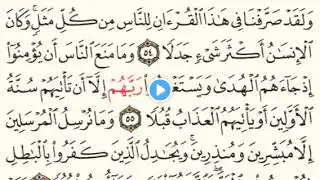 وَلَقَدْ صَرَّفْنَا فِى هَٰذَا ٱلْقُرْءَانِ لِلنَّاسِ مِن كُلِّ مَثَلٍ ۚ وَكَانَ
ٱلْإِنسَٰنُ أَكْثَرَ شَىْءٍ جَدَلًا ٥٤ وَمَا مَنَعَ ٱلنَّاسَ أَن يُؤْمِنُوٓا۟
إِذْ جَآءَهُمُ ٱلْهُدَىٰ وَيَسْتَغْفِرُوا۟ رَبَّهُمْ إِلَّآ أَن تَأْتِيَهُمْ سُنَّةُ
ٱلْأَوَّلِينَ أَوْ يَأْتِيَهُمُ ٱلْعَذَابُ قُبُلًا ٥٥ وَمَا نُرْسِلُ ٱلْمُرْسَلِينَ
إِلَّا مُبَشِّرِينَ وَمُنذِرِينَ ۚ وَيُجَٰدِلُ ٱلَّذِينَ كَفَرُوا۟ بِٱلْبَٰطِلِ